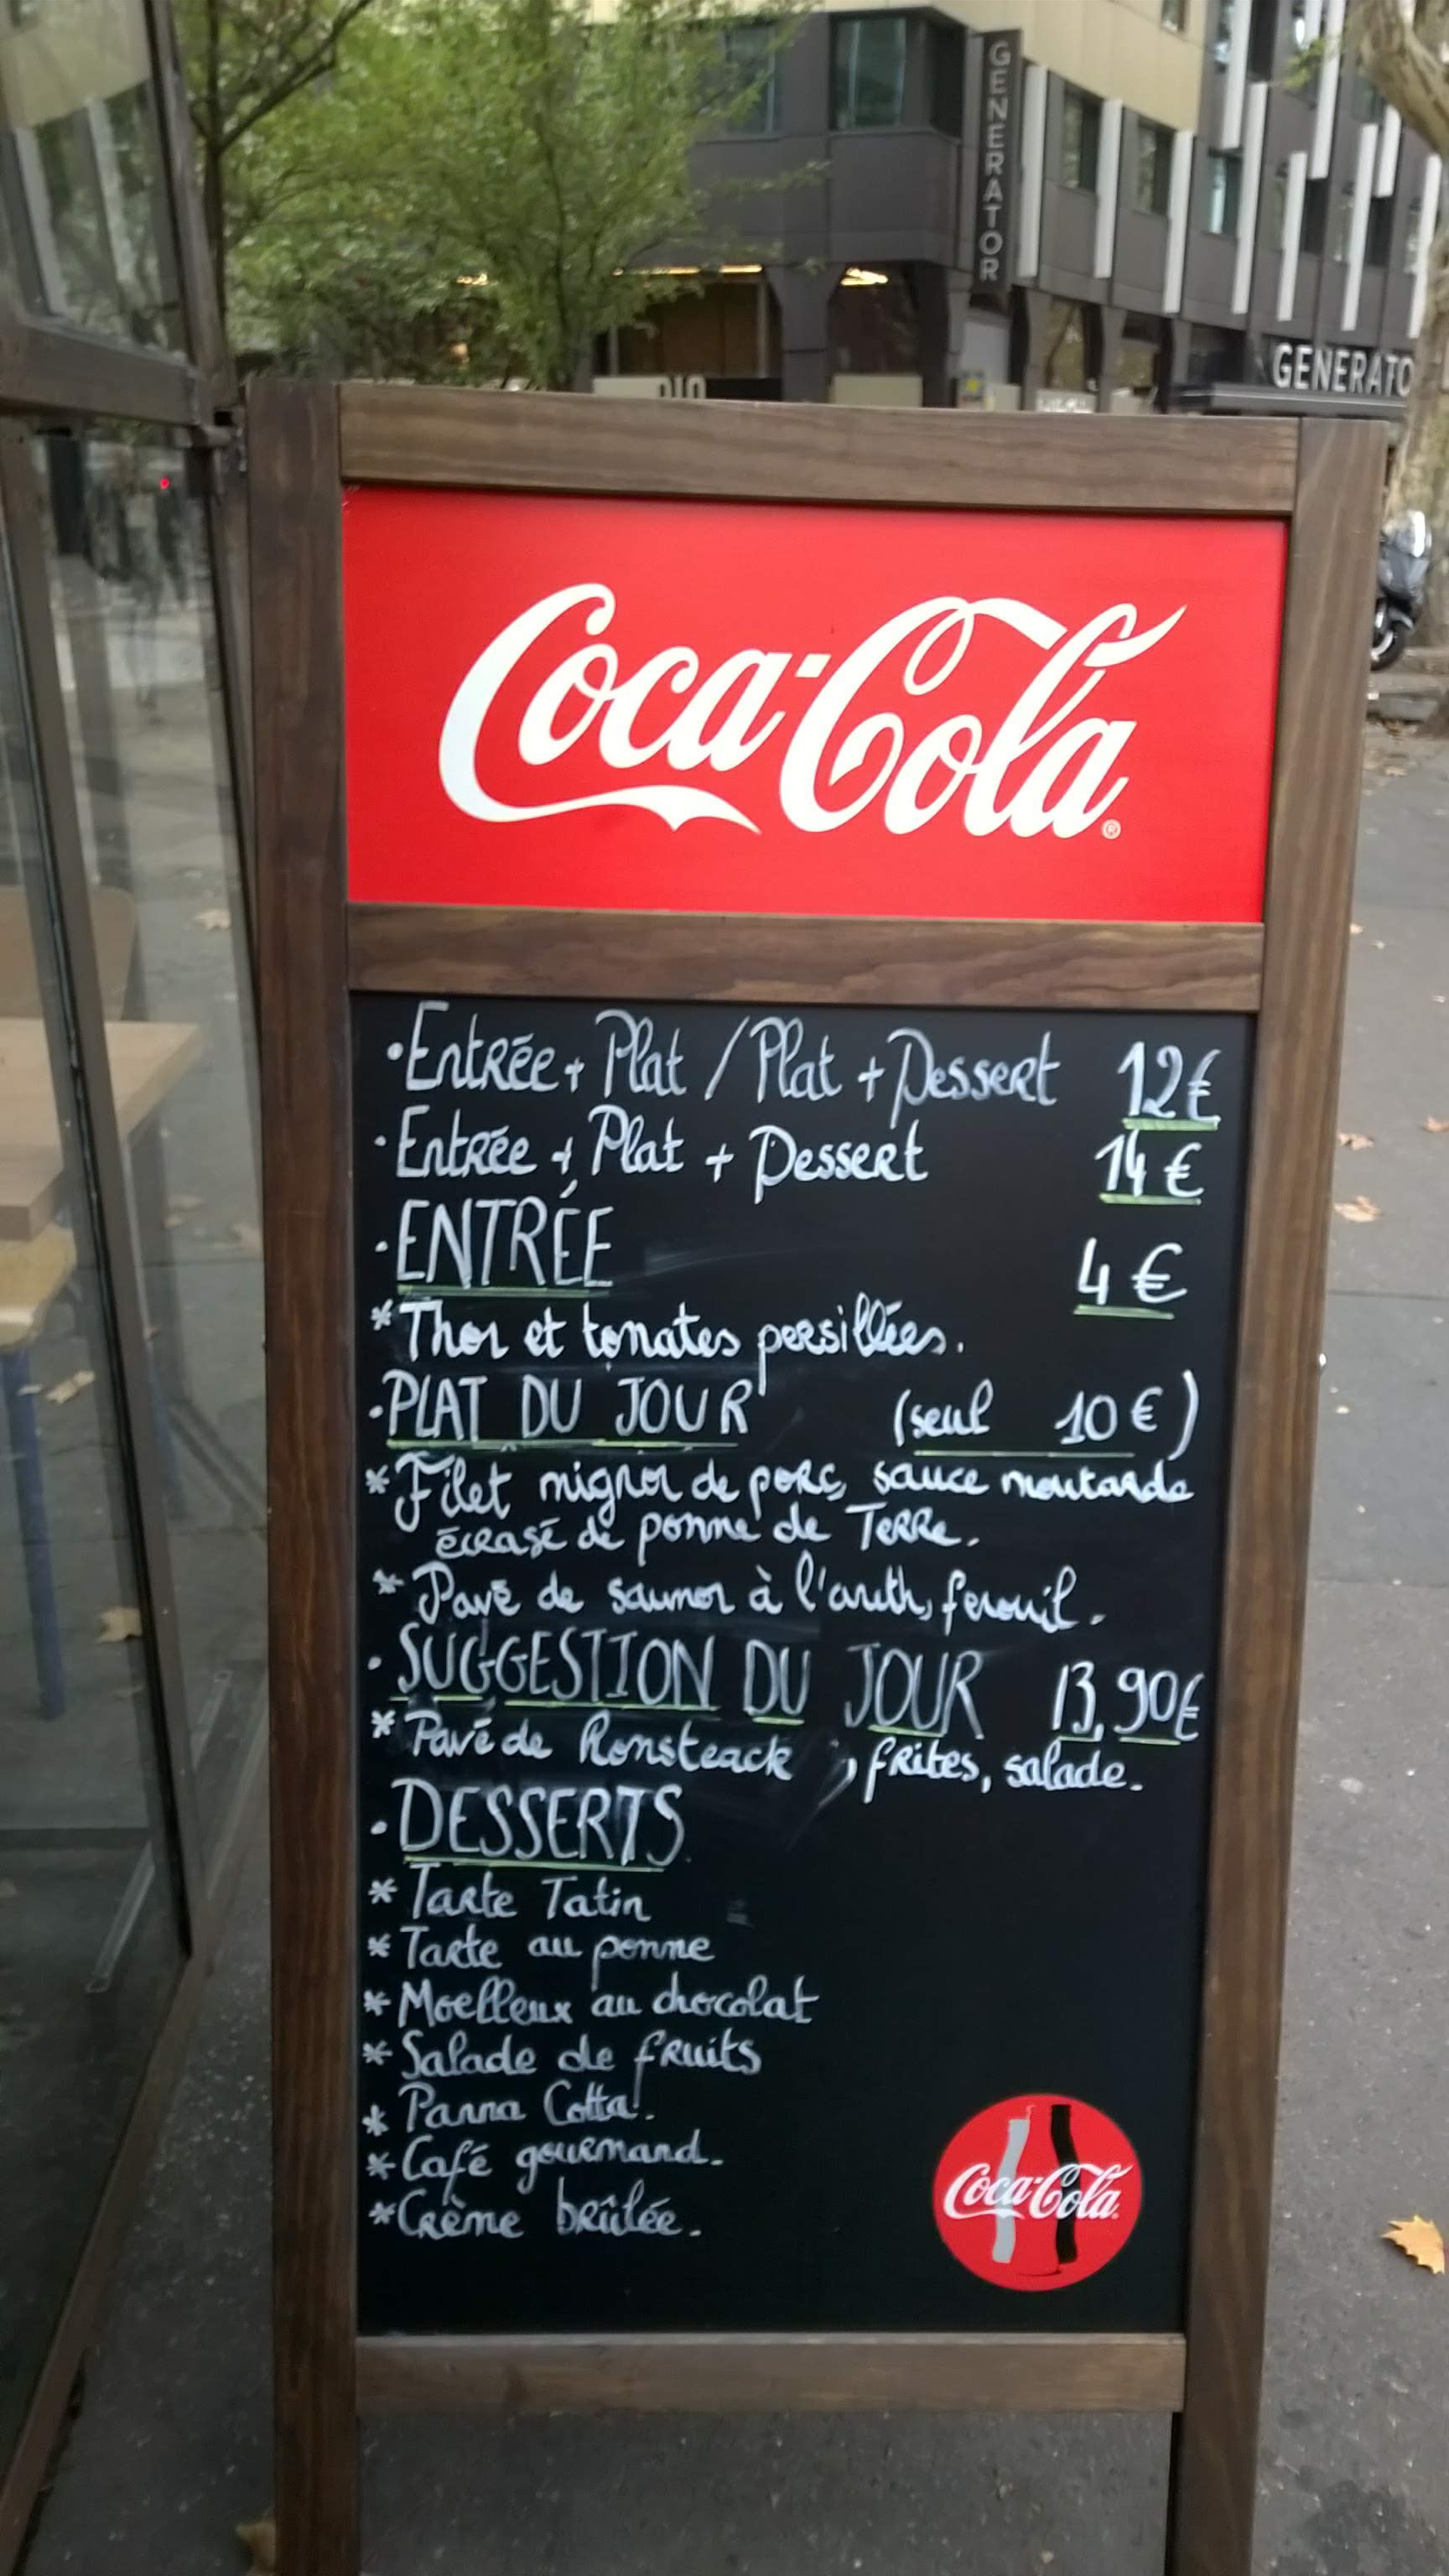 GENERATOR
GENERATO
Coca-Cola®
• Entrée + Plat / Plat + Dessert 12€
• Entrée + Plat + Dessert 14€
• ENTRÉE 4€
* Thon et tomates persillées.
• PLAT DU JOUR (seul 10€)
* Filet mignon de porc, sauce moutarde
écrasé de pomme de Terre.
* Pavé de saumon à l'aneth, fenouil.
• SUGGESTION DU JOUR 13,90€
* Pavé de Romsteack , frites, salade.
• DESSERTS
* Tarte Tatin
* Tarte au pomme
* Moelleux au chocolat
* Salade de fruits
* Panna Cotta.
* Café gourmand.
* Crème brûlée.
Coca-Cola